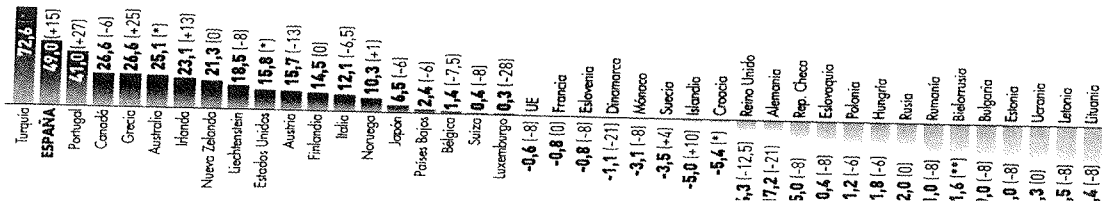 Turquía 72,6
ESPAÑA 49,0 (+15)
Portugal 41,0 (+27)
Canadá 26,6 (-6)
Grecia 26,6 (+25)
Australia 25,1 (*)
Irlanda 23,1 (+13)
Nueva Zelanda 21,3 (0)
Liechtenstein 18,5 (-8)
Estados Unidos 15,8 (*)
Austria 15,7 (-13)
Finlandia 14,5 (0)
Italia 12,1 (-6,5)
Noruega 10,3 (+1)
Japón 6,5 (-6)
Países Bajos 2,4 (-6)
Bélgica 1,4 (-7,5)
Suiza 0,4 (-8)
Luxemburgo 0,3 (-28)
-0,6 (-8) UE
-0,8 (0) Francia
-0,8 (-8) Eslovenia
-1,1 (-21) Dinamarca
-3,1 (-8) Mónaco
-3,5 (+4) Suecia
-5,0 (+10) Islandia
-5,4 (*) Croacia
,3 (-12,5) Reino Unido
17,2 (-21) Alemania
5,0 (-8) Rep. Checa
0,4 (-8) Eslovaquia
1,2 (-6) Polonia
1,8 (-6) Hungría
2,0 (0) Rusia
1,0 (-8) Rumania
1,6 (**) Bielorrusia
,0 (-8) Bulgaria
,0 (-8) Estonia
,3 (0) Ucrania
,5 (-8) Letonia
,4 (-8) Lituania